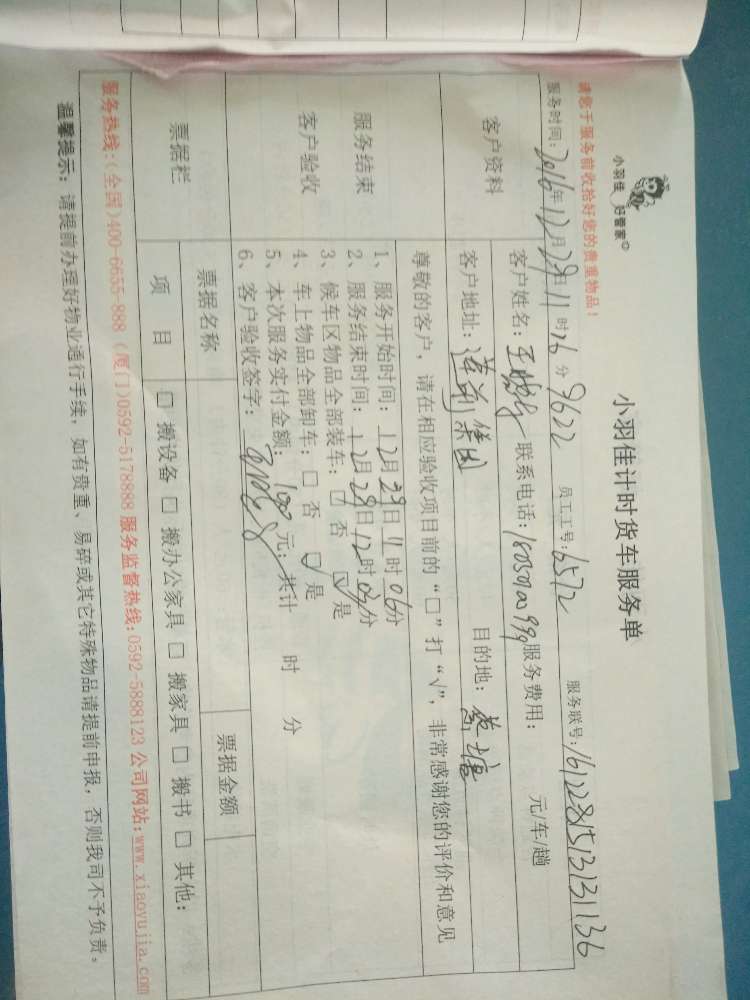 小羽佳 好管家
小羽佳计时货车服务单
请您于服务前收拾好您的贵重物品！
服务时间：2016年12月29日11时26分 9622 员工工号：6572 服务联号：161228151313136
客户资料
客户姓名：王 联系电话： 服务费用： 元/车/趟
客户地址：集团 目的地：蔡塘
尊敬的客户，请在相应验收项目前的“□”打“√”，非常感谢您的评价和意见
服务结束
客户验收
1、服务开始时间：12月29日11时06分
2、服务结束时间：12月29日12时04分
3、候车区物品全部装车：□ 否 ☑ 是
4、车上物品全部卸车：□ 否 ☑ 是
5、本次服务实付金额：100元；共计 时 分
6、客户验收签字：
票据栏
票据名称 票据金额
项 目 □ 搬设备 □ 搬办公家具 □ 搬家具 □ 搬书 □ 其他：
服务热线：(全国)400-6655-888 (厦门)0592-5178888 服务监督热线：0592-5888123 公司网站：www.xiaoyujia.com
温馨提示：请提前办理好物业通行手续，如有贵重、易碎或其它特殊物品请提前申报，否则我司不予负责。